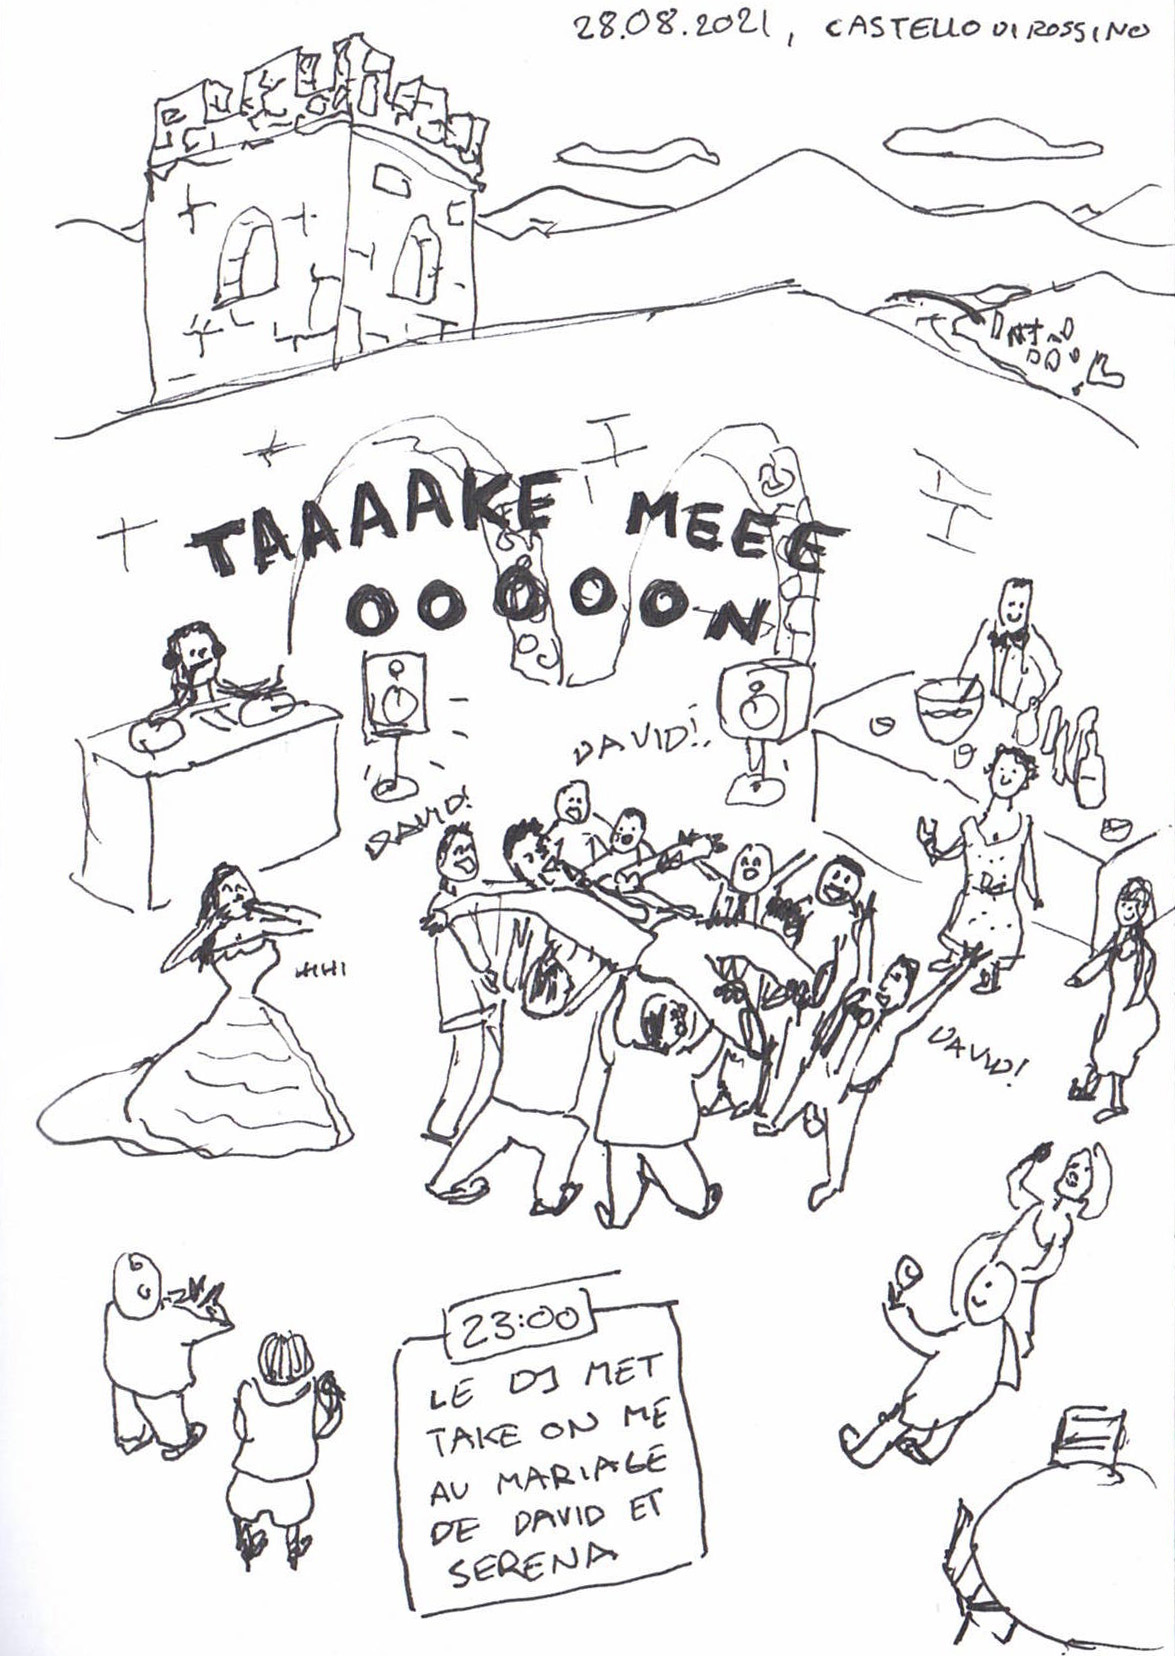 28.08.2021, CASTELLO DI ROSSINO
TAAAAKE MEEE
OOOOON
DAVID!!
DAVID!
HIHI
DAVID!
23:00
LE DJ MET
TAKE ON ME
AU MARIAGE
DE DAVID ET
SERENA